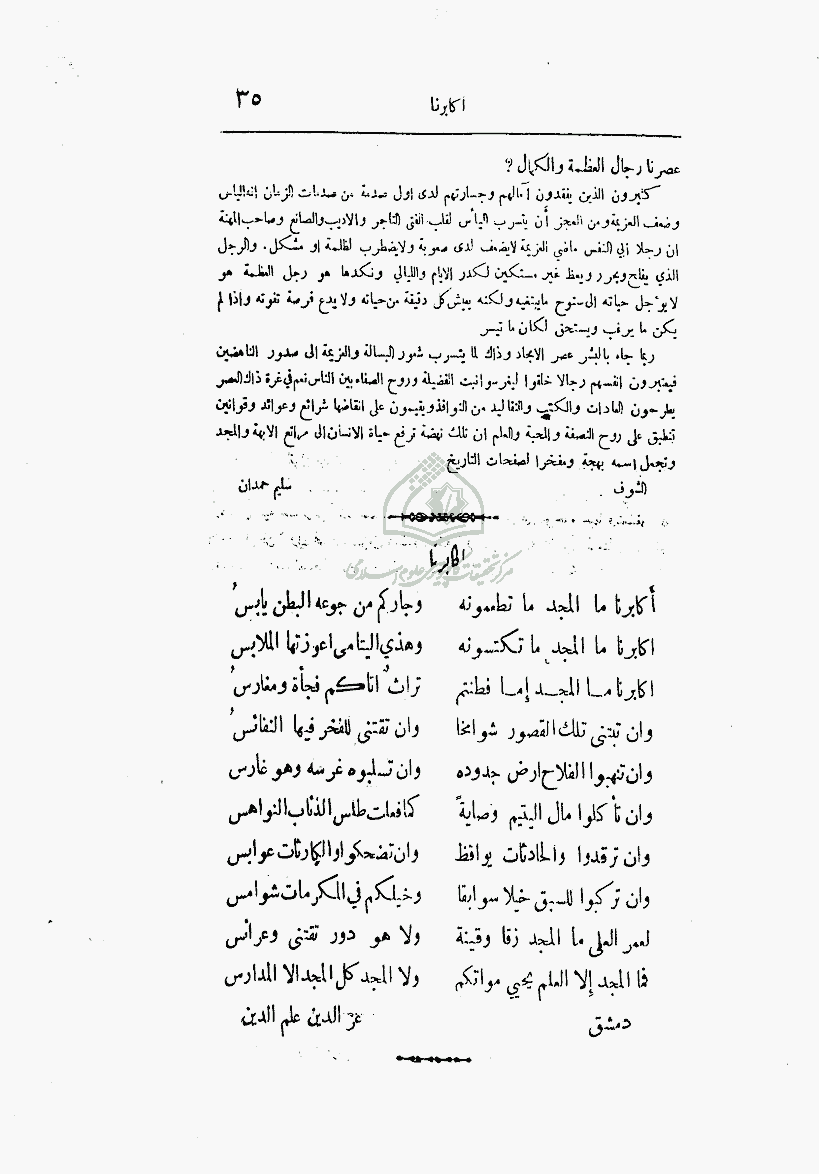 ٣٥ اكابرنا
عصرنا رجال العظمة والكمال ؟
كثيرون الذين يفقدون آمالهم وجسارتهم لدى اول صدمة من صدمات الزمان انه الياس
وضعف العزيمة ومن العجز أن يتسرب اليأس لقلب الفتى التاجر والاديب والصانع وصاحب المهنة
ان رجلا ابي النفس ماضي العزيمة لا يضعف لدى صعوبة ولا يضطرب لظلمة او مشكل. والرجل
الذي يفلح ويحرر ويعظ غير مستكين لكدر الايام والليالي ونكدها هو رجل العظمة هو
لا يؤجل حياته الى سنوح ما يبتغيه ولكنه يعيش كل دقيقة من حياته ولا يدع فرصة تفوته واذا لم
يكن ما يرغب ويستحق لكان ما تيسر
ربما جاء بالبشر عصر الامجاد وذاك لما يتسرب شعور البسالة والعزيمة الى صدور الناهضين
فيعتبرون انفسهم رجالا خلقوا ليغرسوا نبت الفضيلة وروح الصفاء بين الناس نعم في غرة ذاك العصر
يطرحون العادات والكتب والتقاليد من النوافذ ويقيمون على انقاضها شرائع وعوائد وقوانين
تنطبق على روح النصفة والمحبة والعلم ان تلك نهضة ترفع حياة الانسان الى مراتع الابهة والمجد
وتجعل اسمه بهجة ومفخرا لصفحات التاريخ
الشوف سليم حمدان
اكابرنا
مركز تحقيقات كامپيوترى علوم اسلامى
أكابرنا ما المجد ما تطعمونه وجاركم من جوعه البطن يابسُ
اكابرنا ما المجد ما تكتسونه وهذي اليتامى اعوزتها الملابس
اكابرنا ما المجد إما فطنتم تراثٌ اتاكم فجأة ومغارسُ
وان تبتنى تلك القصور شوامخا وان تقتنى للفخر فيها النفائسُ
وان تنهبوا الفلاح ارض جدوده وان تسلبوه غرسه وهو غارس
وان تأكلوا مال اليتيم وصايةً كما فعلت طلس الذئاب النواهس
وان ترقدوا والحادثات يوافظ وان تضحكوا والكارثات عوابس
وان تركبوا للسبق خيلا سوابقا وخيلكم في المكرمات شوامس
لعمر العلى ما المجد زقا وقينة ولا هو دور تقتنى وعرائس
فما المجد إلا العلم يحيي مواتكم ولا المجد كل المجد الا المدارس
دمشق عز الدين علم الدين